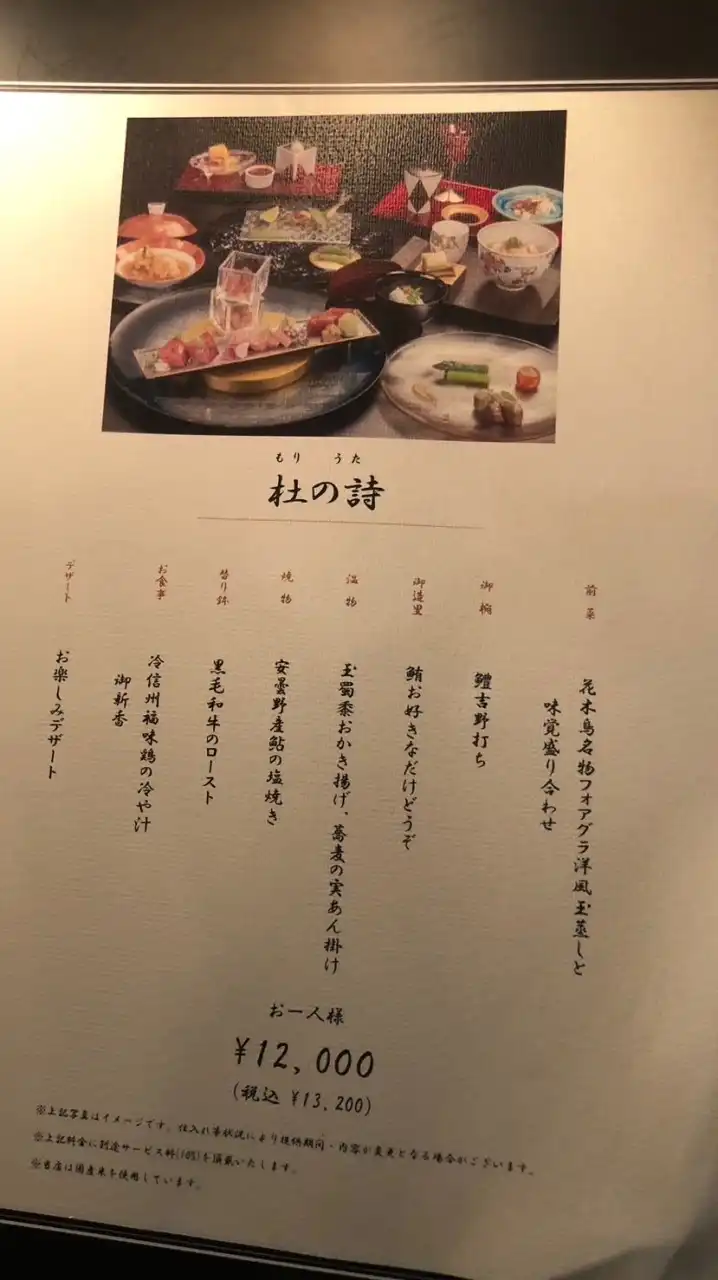 もり うた
杜の詩
前菜
花木鳥名物フォアグラ洋風玉蒸しと
味覚盛り合わせ
御椀
鱧吉野打ち
御造里
鮪お好きなだけどうぞ
温物
玉蜀黍おかき揚げ、蕎麦の実あん掛け
焼物
安曇野産鮎の塩焼き
替り鉢
黒毛和牛のロースト
お食事
冷信州福味鶏の冷や汁
御新香
デザート
お楽しみデザート
お一人様
¥12,000
(税込 ¥13,200)
※上記写真はイメージです。仕入れ等状況により提供期間・内容が変更となる場合がございます。
※上記料金に別途サービス料(10%)を頂戴いたします。
※当店は国産米を使用しています。